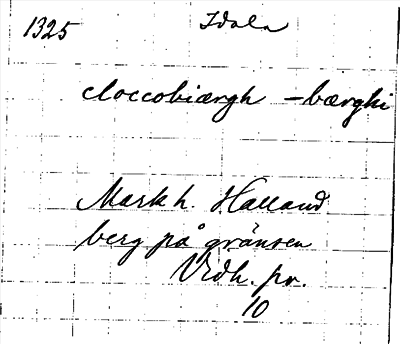 1325 Idala
cloccobiærgh -bærghi
Mark h. Halland
berg på gränsen
Vidh. pr.
10